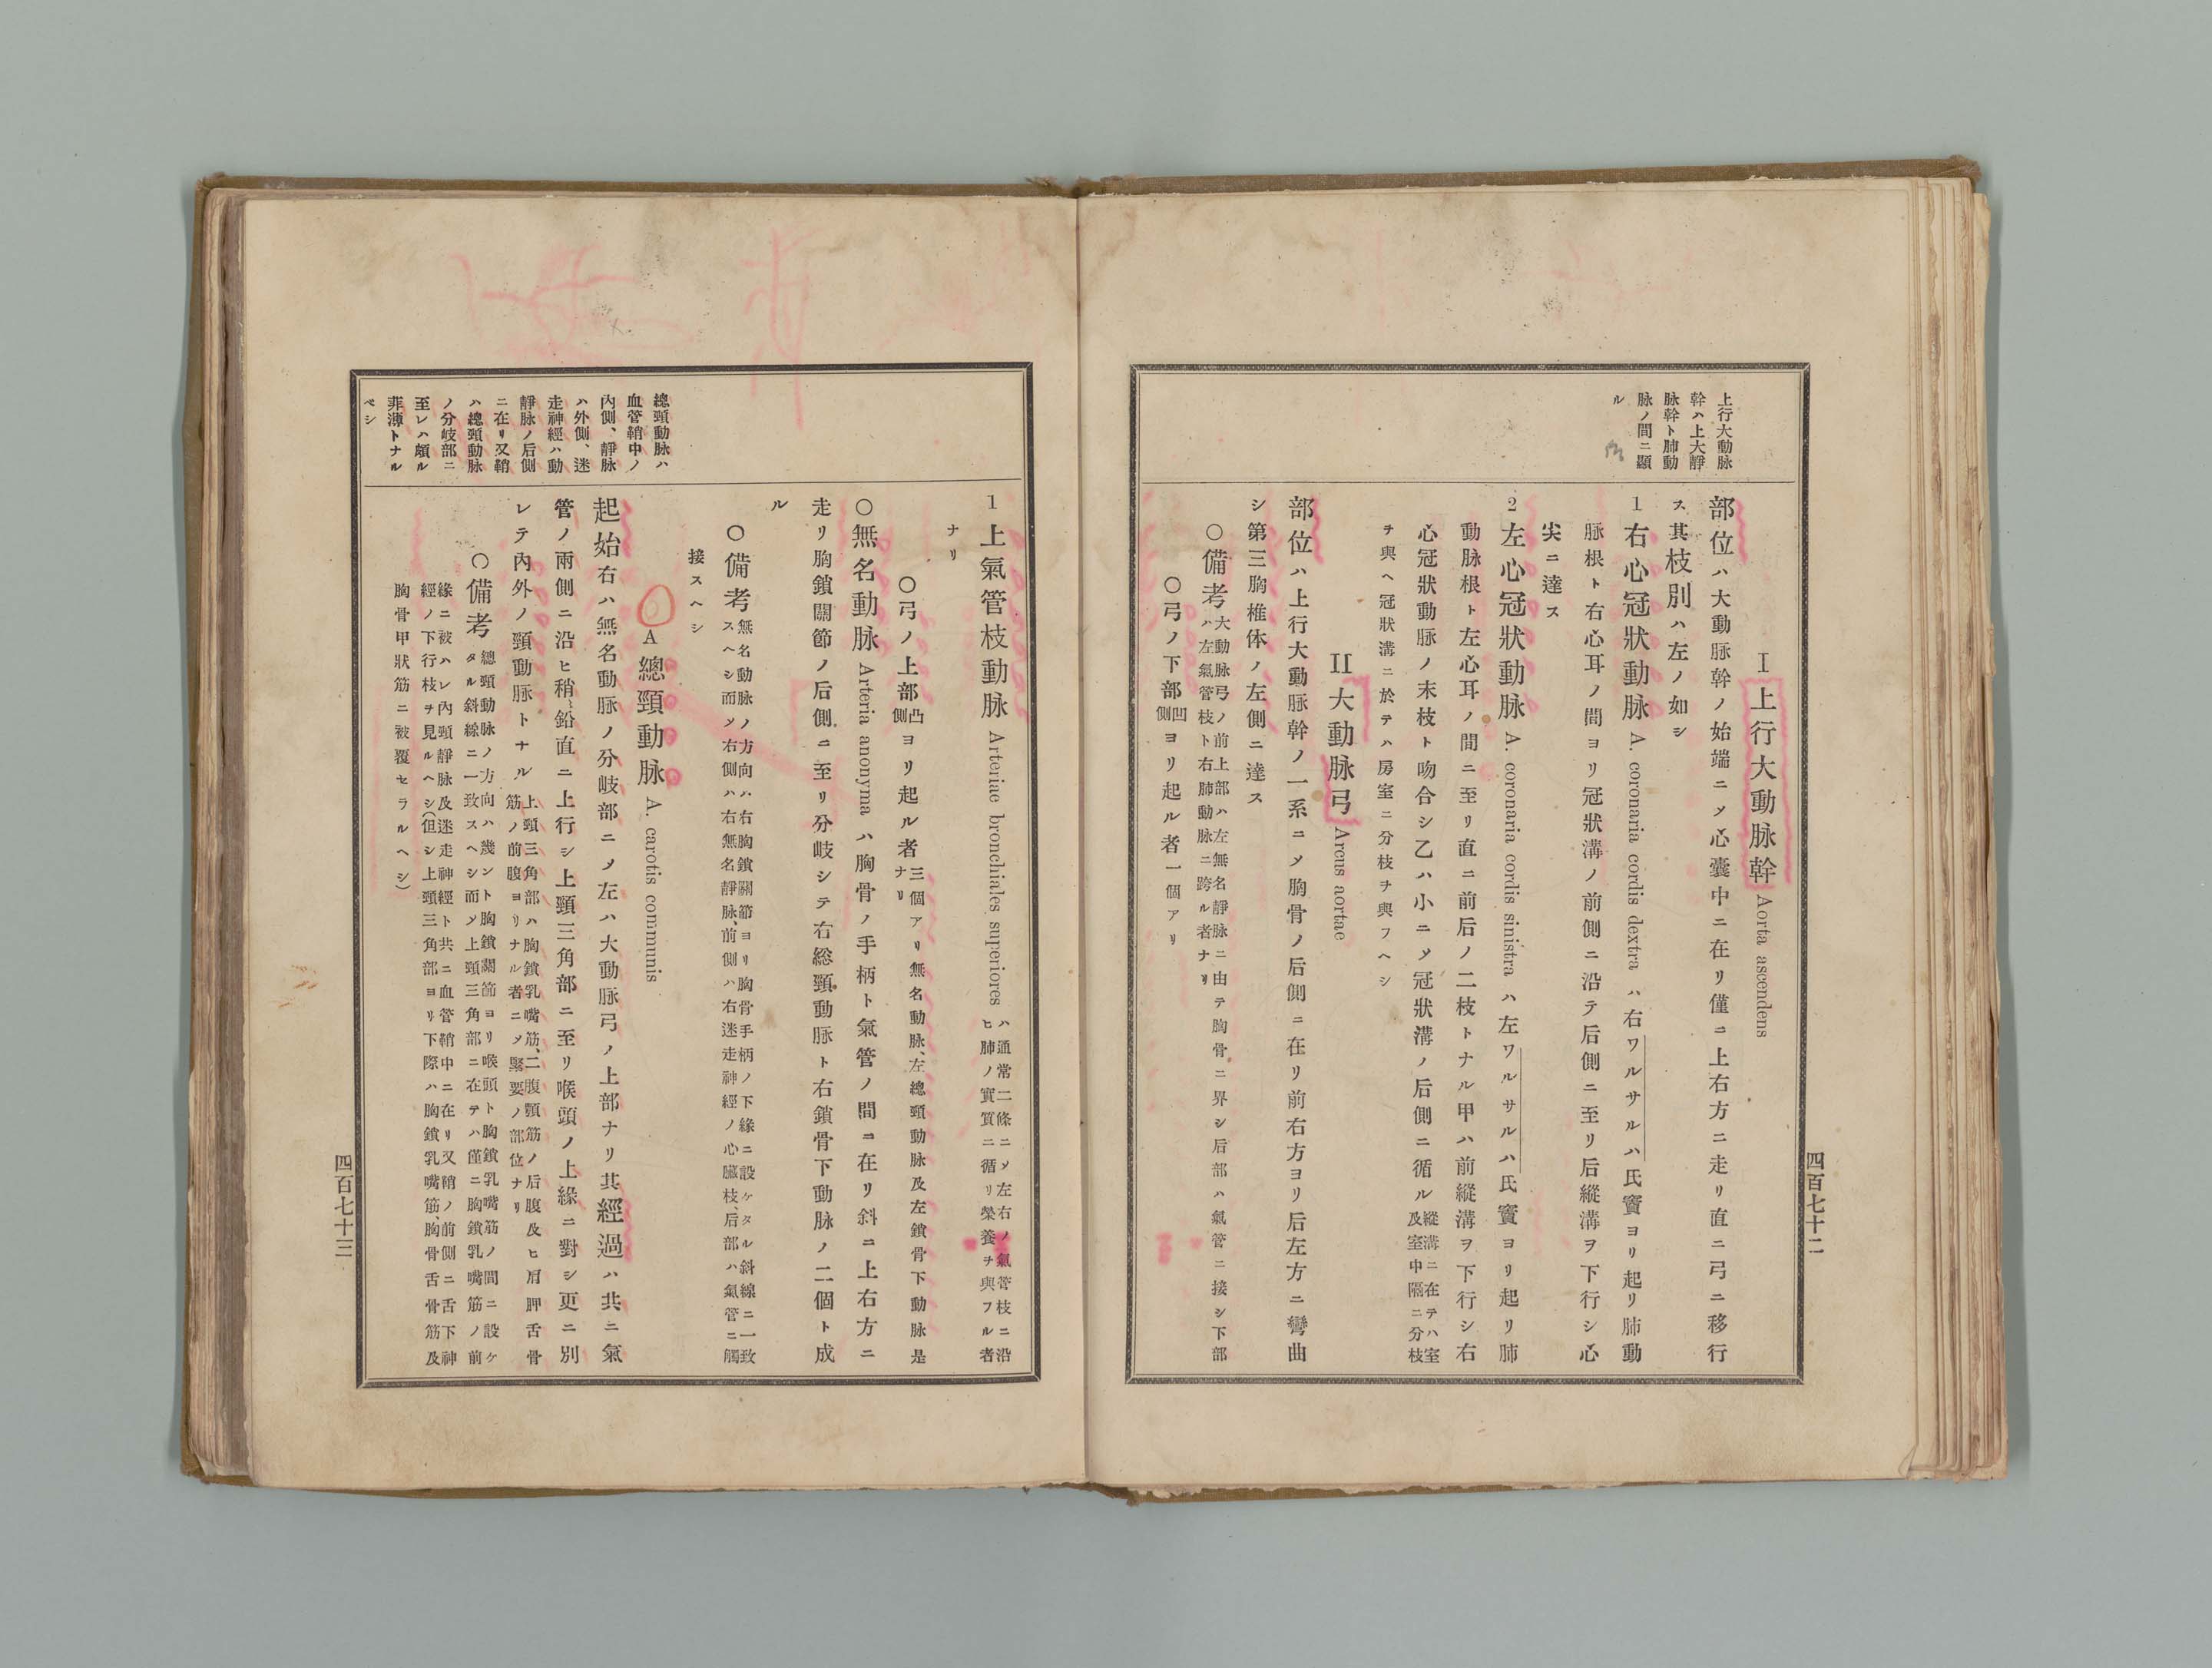 上行大動脉
幹ハ上大靜
脉幹ト肺動
脉ノ間ニ顯
ル
I 上行大動脉幹 Aorta ascendens
部位ハ大動脉幹ノ始端ニメ心囊中ニ在リ僅ニ上右方ニ走リ直ニ弓ニ移行
ス其枝別ハ左ノ如シ
1 右心冠狀動脉 A. coronaria cordis dextra ハ右ワルサルハ氏竇ヨリ起リ肺動
脉根ト右心耳ノ間ヨリ冠狀溝ノ前側ニ沿テ后側ニ至リ后縱溝ヲ下行シ心
尖ニ達ス
2 左心冠狀動脉 A. coronaria cordis sinistra ハ左ワルサルハ氏竇ヨリ起リ肺
動脉根ト左心耳ノ間ニ至リ直ニ前后ノ二枝トナル甲ハ前縱溝ヲ下行シ右
心冠狀動脉ノ末枝ト吻合シ乙ハ小ニメ冠狀溝ノ后側ニ循ル縱溝ニ在テハ室
及室中隔ニ分枝
ヲ與ヘ冠狀溝ニ於テハ房室ニ分枝ヲ與フヘシ
II 大動脉弓 Arcus aortae
部位ハ上行大動脉幹ノ一系ニメ胸骨ノ后側ニ在リ前右方ヨリ后左方ニ彎曲
シ第三胸椎体ノ左側ニ達ス
○備考大動脉弓ノ前上部ハ左無名靜脉ニ由テ胸骨ニ界シ后部ハ氣管ニ接シ下部
ハ左氣管枝ト右肺動脉ニ跨ル者ナリ
○弓ノ下部凹側ヨリ起ル者一個アリ
四百七十二
總頸動脉ハ
血管鞘中ノ
內側、靜脉
ハ外側、迷
走神經ハ動
靜脉ノ后側
ニ在リ又鞘
ハ總頸動脉
ノ分岐部ニ
至レハ頗ル
菲薄トナル
ベシ
1 上氣管枝動脉 Arteriae bronchiales superiores ハ通常二條ニメ左右ノ氣管枝ニ沿
ヒ肺ノ實質ニ循リ榮養ヲ與フル者
ナリ
○弓ノ上部凸側ヨリ起ル者三個アリ無名動脉、左總頸動脉及左鎖骨下動脉是
ナリ
○無名動脉 Arteria anonyma ハ胸骨ノ手柄ト氣管ノ間ニ在リ斜ニ上右方ニ
走リ胸鎖關節ノ后側ニ至リ分岐シテ右総頸動脉ト右鎖骨下動脉ノ二個ト成
ル
○備考無名動脉ノ方向ハ右胸鎖關節ヨリ胸骨手柄ノ下緣ニ設ケタル斜線ニ一致
スヘシ而メ右側ハ右無名靜脉、前側ハ右迷走神經ノ心臟枝、后部ハ氣管ニ觸
接スヘシ
A 總頸動脉 A. carotis communis
起始右ハ無名動脉ノ分岐部ニメ左ハ大動脉弓ノ上部ナリ其經過ハ共ニ氣
管ノ兩側ニ沿ヒ稍、鉛直ニ上行シ上頸三角部ニ至リ喉頭ノ上緣ニ對シ更ニ別
レテ內外ノ頸動脉トナル上頸三角部ハ胸鎖乳嘴筋、二腹顎筋ノ后腹及ヒ肩胛舌骨
筋ノ前腹ヨリナル者ニメ緊要ノ部位ナリ
○備考總頸動脉ノ方向ハ幾ント胸鎖關節ヨリ喉頭ト胸鎖乳嘴筋ノ間ニ設ケ
タル斜線ニ一致スヘシ而メ上頸三角部ニ在テハ僅ニ胸鎖乳嘴筋ノ前
緣ニ被ハレ內頸靜脉及迷走神經ト共ニ血管鞘中ニ在リ又鞘ノ前側ニ舌下神
經ノ下行枝ヲ見ルヘシ(但シ上頸三角部ヨリ下際ハ胸鎖乳嘴筋、胸骨舌骨筋及
胸骨甲狀筋ニ被覆セラルヘシ)
四百七十三